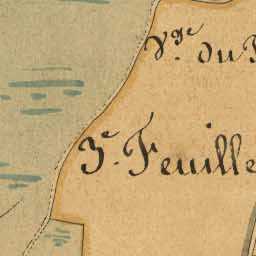 Vge. du
3e. Feuille